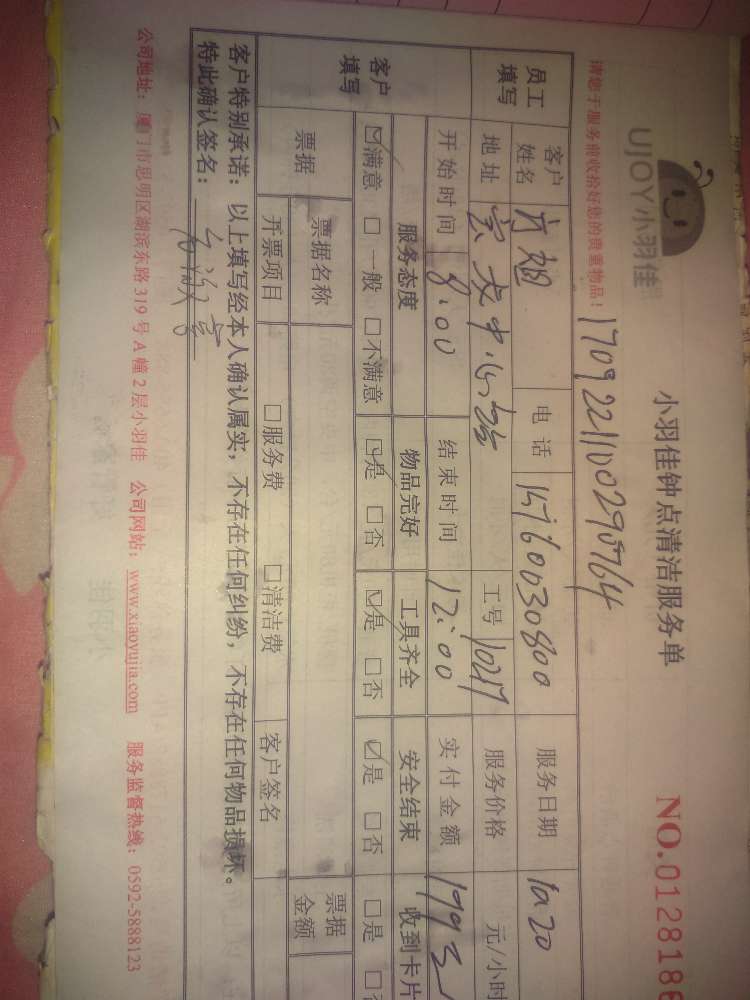 UJOY小羽佳
小羽佳钟点清洁服务单
NO.0128186
请您于服务前收拾好您的贵重物品!
1709221100295764
员工填写 客户姓名 电话 15760030800 服务日期 1020
地址 工号 10217 服务价格 元/小时
开始时间 8:00 结束时间 12:00 实付金额 199
客户填写 服务态度 物品完好 工具齐全 安全结束 收到卡片
☑满意 □一般 □不满意 ☑是 □否 ☑是 □否 ☑是 □否 □是 □否
票据 票据名称 票据金额
开票项目 □服务费 □清洁费 客户签名
客户特别承诺:以上填写经本人确认属实,不存在任何纠纷,不存在任何物品损坏。
特此确认签名:
公司地址:厦门市思明区湖滨东路319号A幢2层小羽佳 公司网站:www.xiaoyujia.com 服务监督热线:0592-5888123